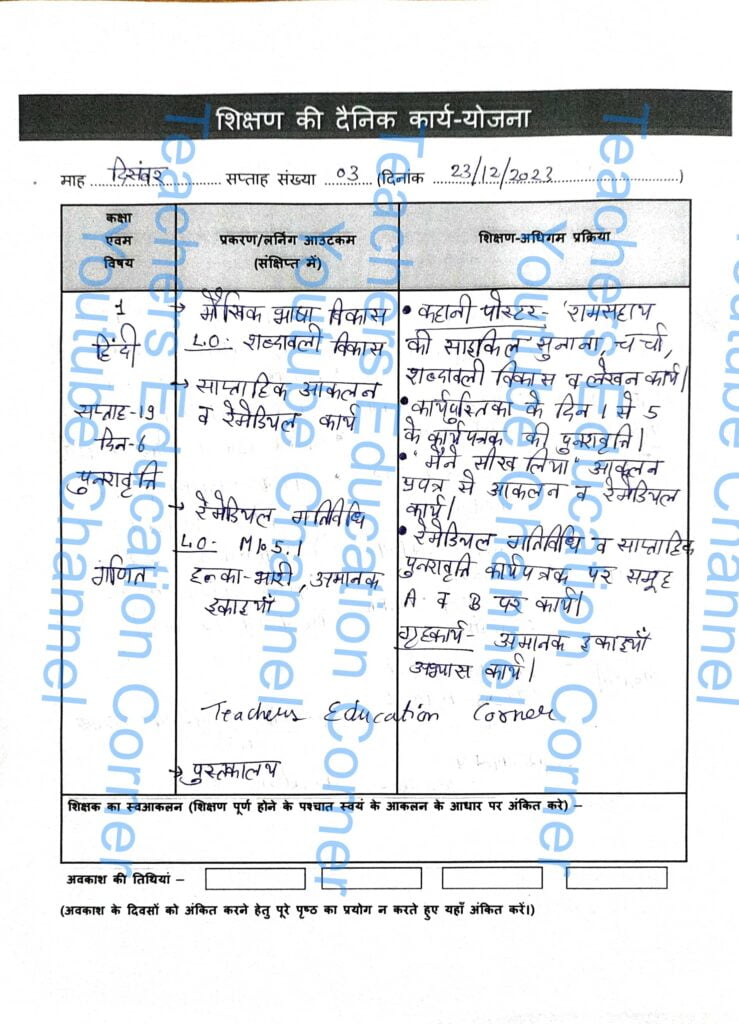 शिक्षण की दैनिक कार्य-योजना
माह दिसंबर सप्ताह संख्या 03 (दिनांक 23/12/2023)
कक्षा
एवम
विषय
प्रकरण/लर्निंग आउटकम
(संक्षिप्त में)
शिक्षण-अधिगम प्रक्रिया
1
हिंदी
सप्ताह-19
दिन-6
पुनरावृत्ति
गणित
→ मौखिक भाषा विकास
L.O:- शब्दावली विकास
→ साप्ताहिक आकलन
व रेमेडियल कार्य
→ रेमेडियल गतिविधि
L.O:- M105.1
हल्का-भारी, अमानक
इकाइयाँ
→ पुस्तकालय
• कहानी पोस्टर- 'रामसहाय
की साइकिल' सुनाना, चर्चा,
शब्दावली विकास व लेखन कार्य।
• कार्यपुस्तिका के दिन 1 से 5
के कार्यपत्रक की पुनरावृत्ति।
• "मैंने सीख लिया" आकलन
प्रपत्र से आकलन व रेमेडियल
कार्य।
• रेमेडियल गतिविधि व साप्ताहिक
पुनरावृत्ति कार्यपत्रक पर समूह
A व B पर कार्य।
गृहकार्य- अमानक इकाइयाँ
अभ्यास कार्य।
Teachers Education Corner
शिक्षक का स्वआकलन (शिक्षण पूर्ण होने के पश्चात स्वयं के आकलन के आधार पर अंकित करे) –
अवकाश की तिथियां –
(अवकाश के दिवसों को अंकित करने हेतु पूरे पृष्ठ का प्रयोग न करते हुए यहाँ अंकित करें।)
Teachers Education Corner
Youtube Channel
Teachers Education Corner
Youtube Channel
Teachers Education Corner
Youtube Channel